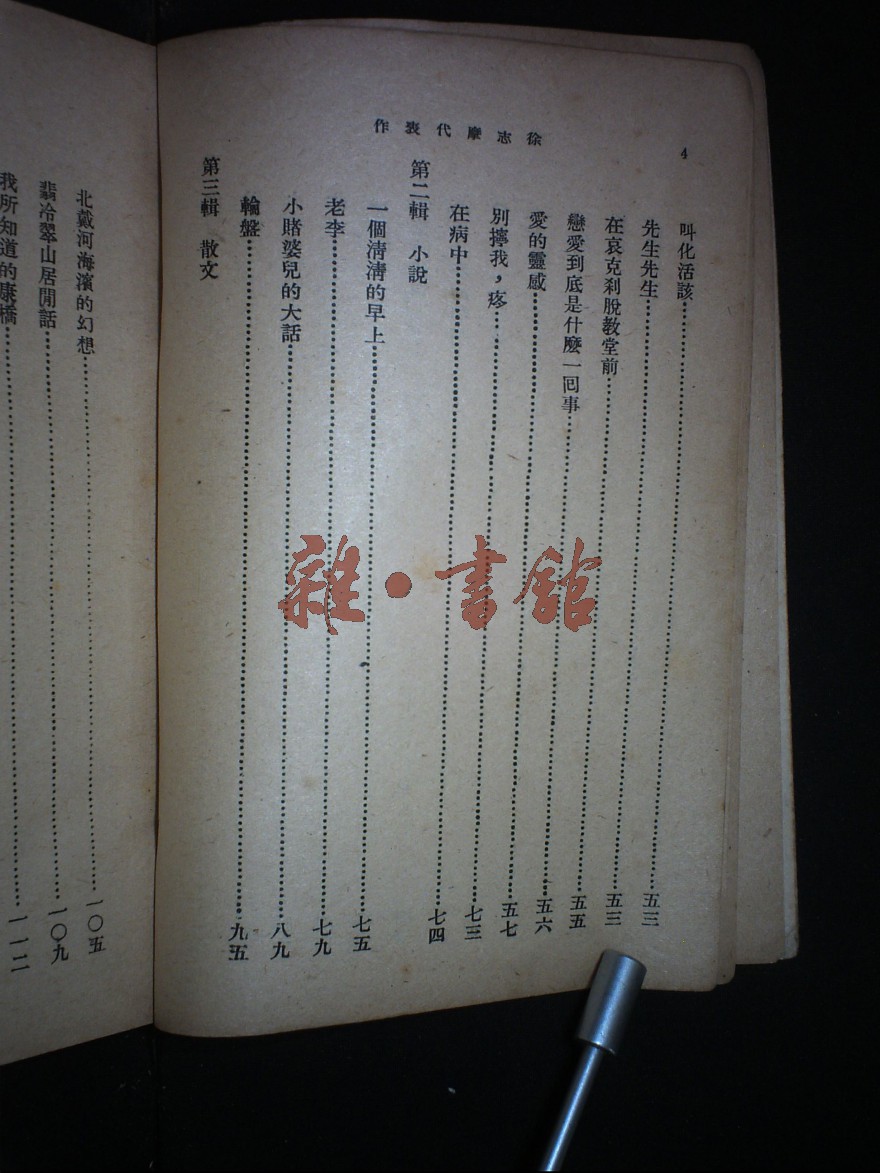 4
徐志摩代表作
叫化活該……五三
先生先生……五三
在哀克剎脫教堂前……五五
戀愛到底是什麼一囘事……五六
愛的靈感……五七
別擰我，疼……七三
在病中……七四
第二輯 小說
一個清清的早上……七五
老李……七九
小賭婆兒的大話……八九
輪盤……九五
第三輯 散文
北戴河海濱的幻想……一〇五
翡冷翠山居閒話……一〇九
我所知道的康橋……一一二
雜·書館